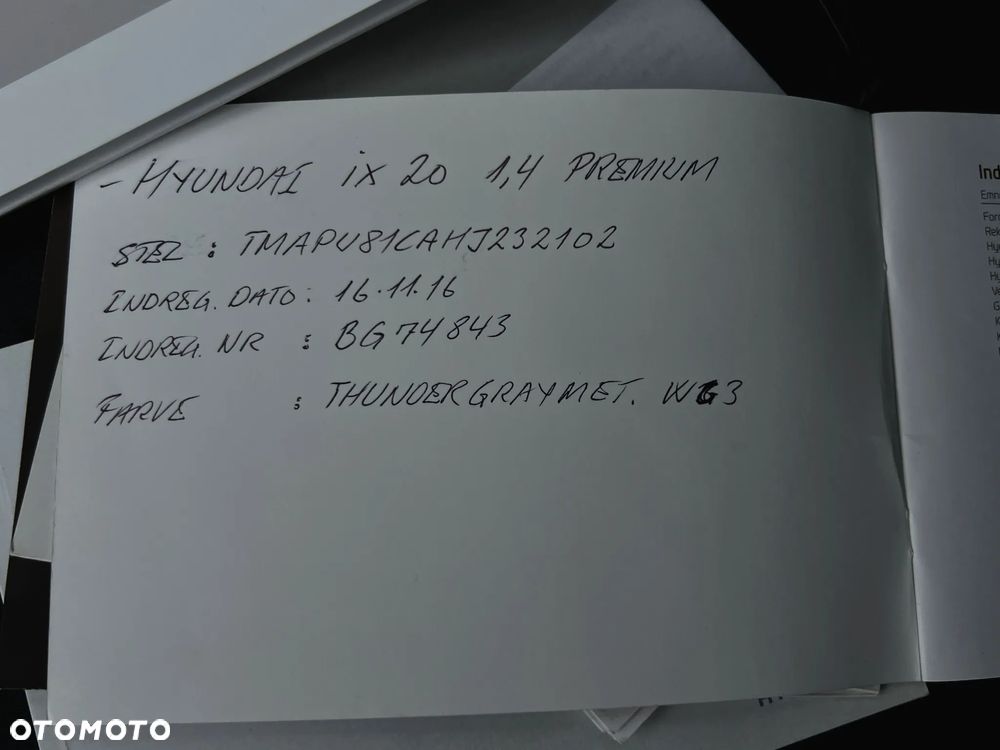 - HYUNDAI ix 20 1,4 PREMIUM
STEL : TMAPU81CAHJ232102
INDREG. DATO : 16.11.16
INDREG. NR : BG 74843
FARVE : THUNDERGRAYMET. WG3
Ind
Emn
OTOMOTO